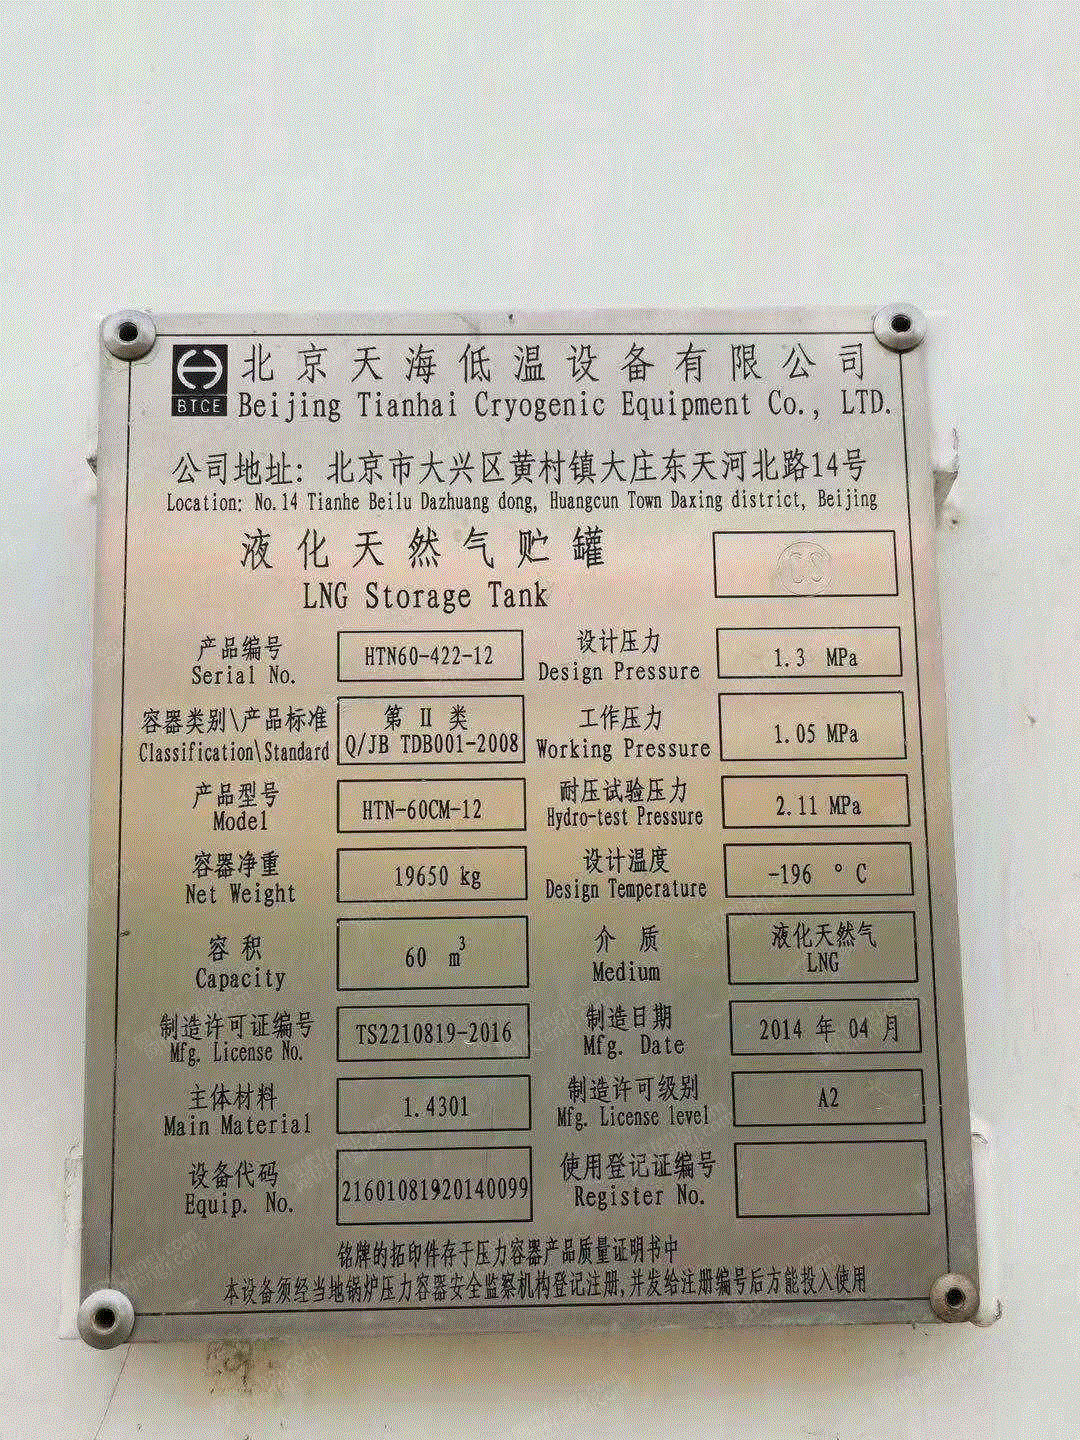 北京天海低温设备有限公司
BTCE
Beijing Tianhai Cryogenic Equipment Co., LTD.
公司地址: 北京市大兴区黄村镇大庄东天河北路14号
Location: No.14 Tianhe Beilu Dazhuang dong, Huangcun Town Daxing district, Beijing
液化天然气贮罐
LNG Storage Tank
CS
产品编号
Serial No.
HTN60-422-12
设计压力
Design Pressure
1.3 MPa
容器类别\产品标准
Classification\Standard
第 II 类
Q/JB TDB001-2008
工作压力
Working Pressure
1.05 MPa
产品型号
Model
HTN-60CM-12
耐压试验压力
Hydro-test Pressure
2.11 MPa
容器净重
Net Weight
19650 kg
设计温度
Design Temperature
-196 ° C
容 积
Capacity
60 m³
介 质
Medium
液化天然气
LNG
制造许可证编号
Mfg. License No.
TS2210819-2016
制造日期
Mfg. Date
2014 年 04 月
主体材料
Main Material
1.4301
制造许可级别
Mfg. License level
A2
设备代码
Equip. No.
21601081920140099
使用登记证编号
Register No.
铭牌的拓印件存于压力容器产品质量证明书中
本设备须经当地锅炉压力容器安全监察机构登记注册,并发给注册编号后方能投入使用